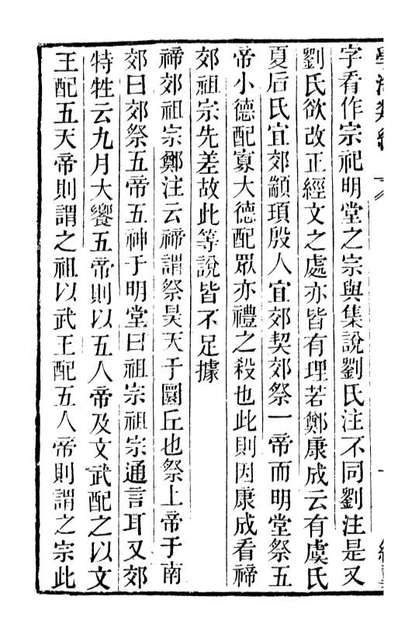 字看作宗祀明堂之宗與集說劉氏注不同劉注是又
劉氏欲改正經文之處亦皆有理若鄭康成云有虞氏
夏后氏宜郊顓頊殷人宜郊契郊祭一帝而明堂祭五
帝小德配寡大德配眾亦禮之殺也此則因康成看禘
郊祖宗先差故此等說皆不足據
禘郊祖宗鄭注云禘謂祭昊天于圜丘也祭上帝于南
郊曰郊祭五帝五神于明堂曰祖宗祖宗通言耳又郊
特牲云九月大饗五帝則以五人帝及文武配之以文
王配五天帝則謂之祖以武王配五人帝則謂之宗此